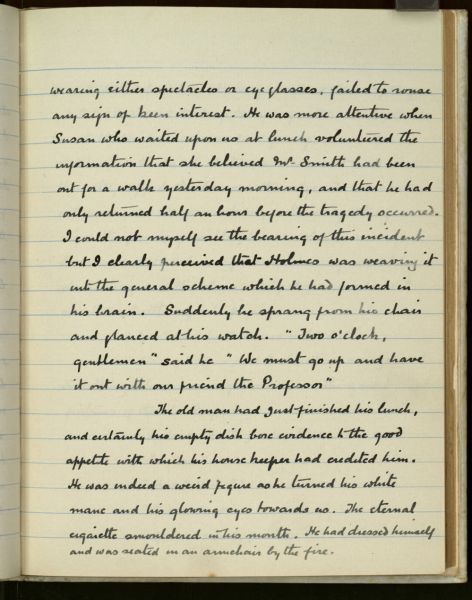 wearing either spectacles or eyeglasses, failed to rouse
any sign of keen interest. He was more attentive when
Susan who waited upon us at lunch voluntured the
information that she believed Mr Smith had been
out for a walk yesterday morning, and that he had
only returned half an hour before the tragedy occurred.
I could not myself see the bearing of this incident
but I clearly perceived that Holmes was weaving it
into the general scheme which he had formed in
his brain. Suddenly he sprang from his chair
and glanced at his watch. "Two o'clock,
gentlemen" said he "We must go up and have
it out with our friend the Professor"
The old man had just finished his lunch,
and certainly his empty dish bore evidence to the good
appetite with which his housekeeper had credited him.
He was indeed a weird figure as he turned his white
mane and his glowing eyes towards us. The eternal
cigarette smouldered in his mouth. He had dressed himself
and was seated in an armchair by the fire.